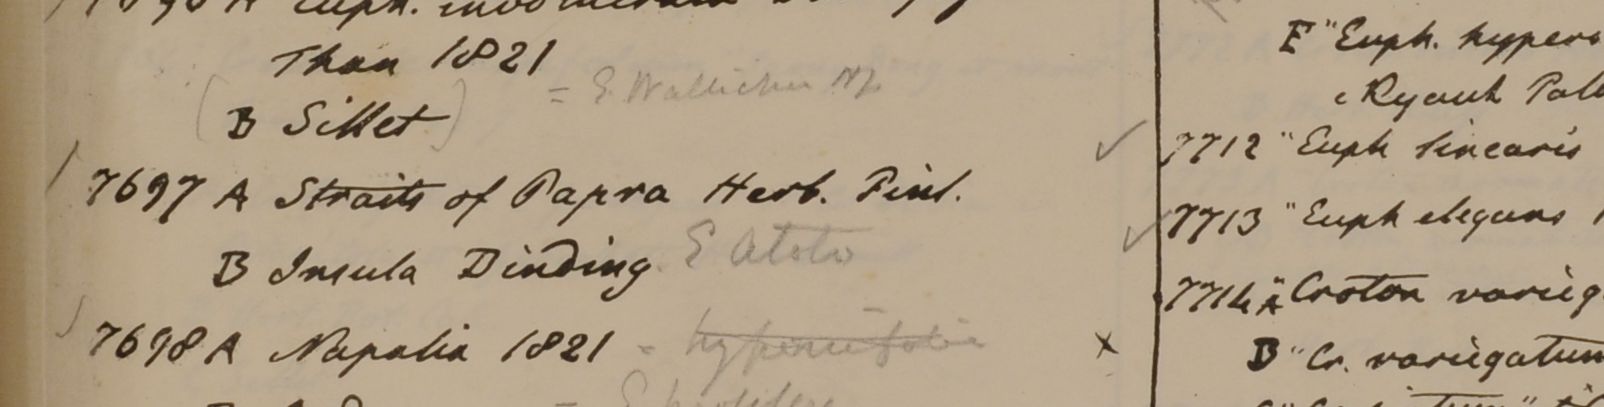 Than 1821
B Sillet = E. Wallichii
7697 A Straits of Papra Herb. Finl.
B Insula Dinding E Atoto
7698 A Napalia 1821 - hypericifolia
E "Euph. hyperi
7712 " Euph linearis
7713 " Euph elegans
7714 A " Croton varieg
B " Cr. variegatum